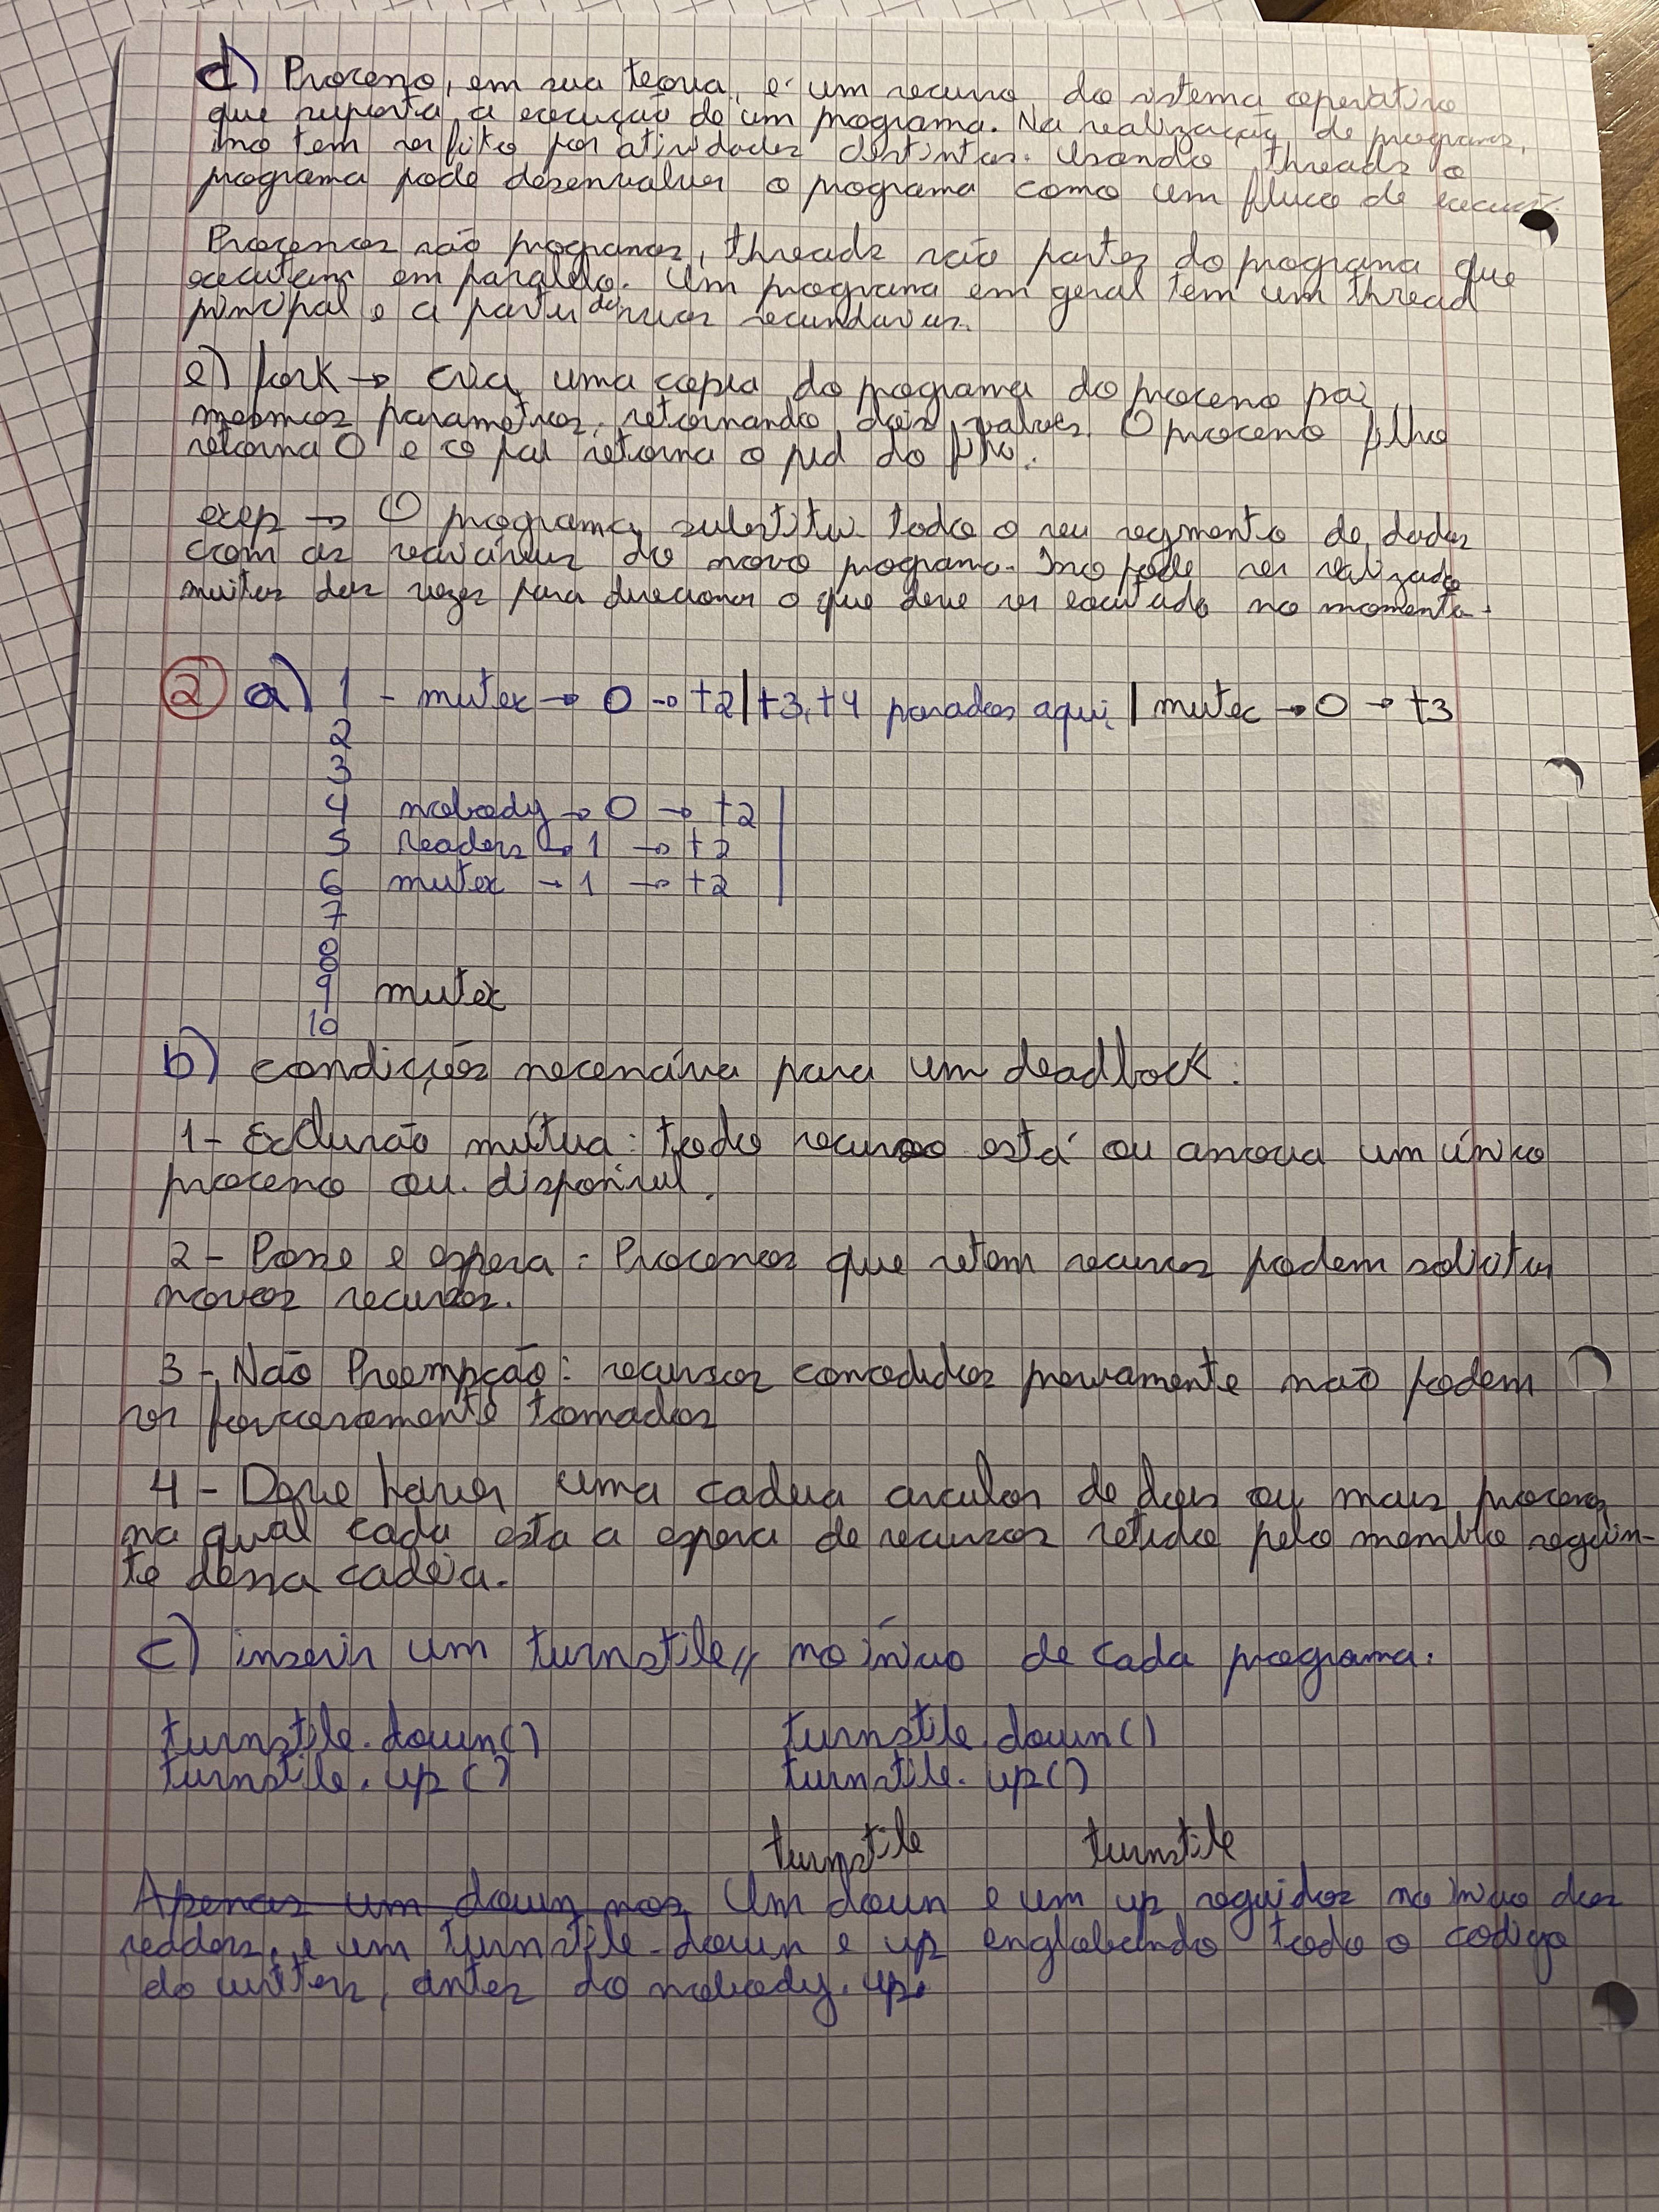 d) Processo, em sua teoria, é um recurso do sistema operativo
que suporta a execução de um programa. Na realização de programas,
isso tem ser feito por atividades distintas. Usando threads o
programa pode desenvolver o programa como um fluxo de
Processos são programas, threads são partes do programa que
executam em paralelo. Um programa em geral tem um thread
principal e a partir dele secundarias.
e) fork → cria uma copia do programa do processo pai
mesmos parametros, retornando dois valores. O processo filho
retorna 0 e o pai retorna o pid do filho.
exep → O programa substitui todo o seu segmento de dados
com as do novo programa. Isso pode ser realizado
muitas das vezes para direcionar o que deve ser executado no momento.
② a) 1 - mutex → 0 → t2 | t3, t4 parados aqui | mutex → 0 → t3
2
3
4 nobody → 0 → t2 |
5 readers → 1 → t2
6 mutex → 1 → t2
7
8
9 mutex
10
b) condições necessária para um deadlock:
1 - Exclusão mútua: todo recurso está ou a um único
processo ou disponivel.
2 - Posse e espera: Processos que retem recursos podem solicitar
novos recursos.
3 - Não Preempção: recursos concedidos previamente não podem
ser forçosamente tomados
4 - Deve haver uma cadeia circular de dois ou mais processos
na qual cada esta a espera de recursos retido pelo membro seguin-
te dessa cadeia.
c) inserir um turnstile, no ínicio de cada programa.
turnstile.down() turnstile.down()
turnstile.up() turnstile.up()
turnstile turnstile
Apenas um down nos Um down e um up seguidos no inicio dos
readers, e um turnstile.down e up englobando todo o codigo
do writers, antes do nobody.up.